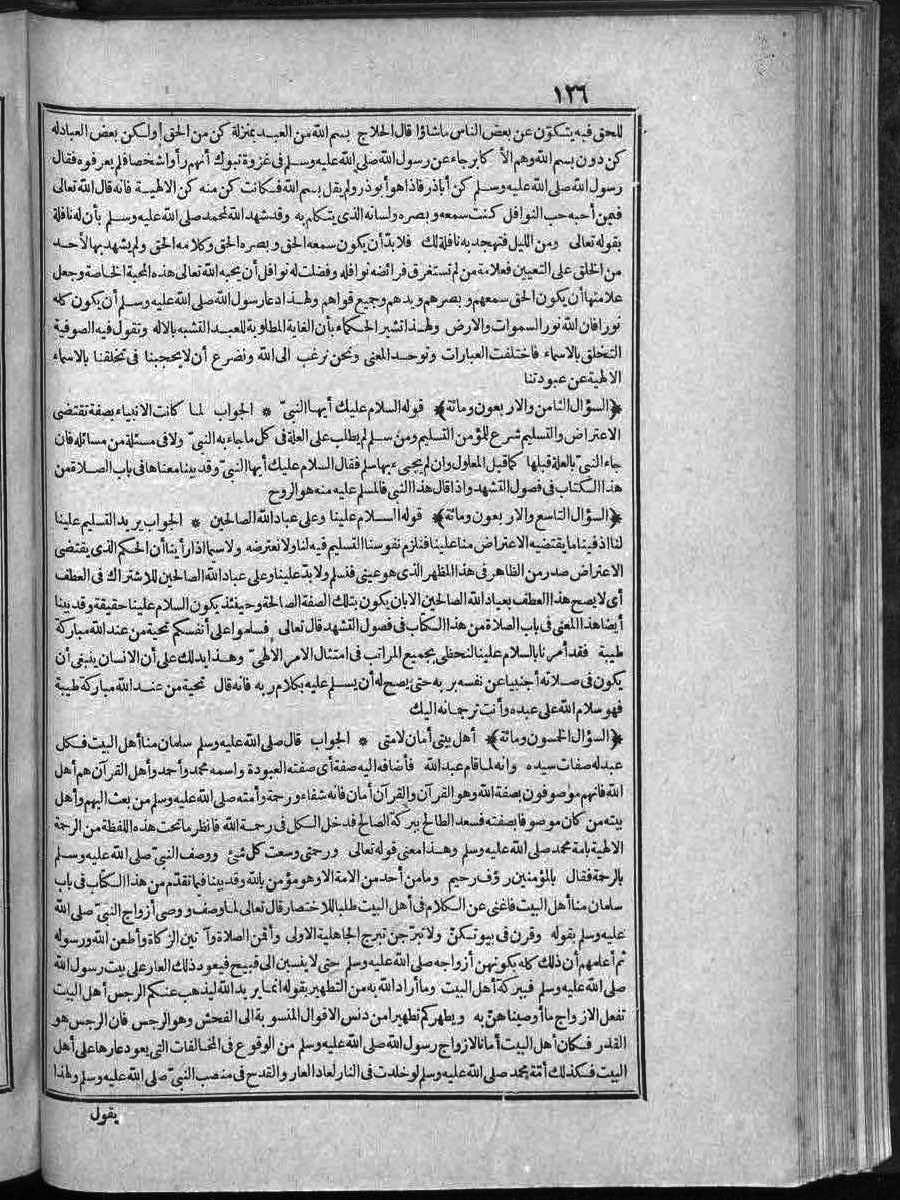 ١٢٦
للحق فيه يتكوّن عن بعض الناس ماشاؤا قال الحلاج بسم الله من العبد بمنزلة كن من الحق ولكن بعض العباد له
كن دون بسم الله وهم الاكابر جاء عن رسول الله صلى الله عليه وسلم فى غزوة تبوك أنهم رأوا شخصا فلم يعرفوه فقال
رسول الله صلى الله عليه وسلم كن أباذر فاذا هو أبوذر ولم يقل بسم الله فكانت كن منه كن الالهية فانه قال الله تعالى
فيمن أحبه حب النوافل كنت سمعه وبصره ولسانه الذى يتكلم به وقد شهد الله لمحمد صلى الله عليه وسلم بأن له نافلة
بقوله تعالى ومن الليل فتهجد به نافلة لك فلا بدّ أن يكون سمعه الحق وبصره الحق وكلامه الحق ولم يشهد بها لأحد
من الخلق على التعيين فعلامة من لم تستغرق فرائضه نوافله وفضلت له نوافل أن يحبه الله تعالى هذه المحبة الخاصة وجعل
علامتها أن يكون الحق سمعهم وبصرهم ويدهم وجميع قواهم ولهذا دعا رسول الله صلى الله عليه وسلم أن يكون كله
نورا فان الله نور السموات والارض ولهذا تشير الحكماء بأن الغاية المطلوبة للعبد التشبه بالاله وتقول فيه الصوفية
التخلق بالاسماء فاختلفت العبارات وتوحد المعنى ونحن نرغب الى الله ونضرع أن لا يحجبنا فى تخلقنا بالاسماء
الالهية عن عبودتنا
﴿السؤال الثامن والاربعون ومائة﴾ قوله السلام عليك أيها النبىّ * الجواب لما كانت الانبياء بصفة تقتضى
الاعتراض والتسليم شرع للمؤمن التسليم ومن سلم لم يطلب على العلة فى كل ما جاء به النبىّ ولا فى مسئلة من مسائله فان
جاء النبىّ بالعلة قبلها كما قبل المعلول وان لم يجىء بها سلم فقال السلام عليك أيها النبىّ وقد بينا معناها فى باب الصلاة من
هذا الكتاب فى فصول التشهد واذا قال هذا النبى فالمسلم عليه منه هو الروح
﴿السؤال التاسع والاربعون ومائة﴾ قوله السلام علينا وعلى عباد الله الصالحين * الجواب يريد التسليم علينا
لنا اذ فينا ما يقتضيه الاعتراض منا علينا فنلزم نفوسنا التسليم فيه لنا ولا نعترضه ولا سيما اذا رأينا أن الحكم الذى يقتضى
الاعتراض صدر من الظاهر فى هذا المظهر الذى هو عينى فنسلم ولا بدّ علينا وعلى عباد الله الصالحين للاشتراك فى العطف
أى لا يصح هذا العطف بعباد الله الصالحين الا بان يكون بتلك الصفة الصالحة وحينئذ يكون السلام علينا حقيقة وقد بينا
أيضا هذا المعنى فى باب الصلاة من هذا الكتاب فى فصول التشهد قال تعالى فسلموا على أنفسكم تحية من عند الله مباركة
طيبة فقد أمرنا بالسلام علينا لنحظى بجميع المراتب فى امتثال الامر الالهىّ وهذا يدلك على أن الانسان ينبغى أن
يكون فى صلاته أجنبيا عن نفسه بربه حتى يصح له أن يسلم عليه بكلام ربه فانه قال تحية من عند الله مباركة طيبة
فهو سلام الله على عبده وأنت ترجمانه اليك
﴿السؤال الخمسون ومائة﴾ أهل بيتى أمان لامتى * الجواب قال صلى الله عليه وسلم سلمان منا أهل البيت فكل
عبد له صفات سيده وانه لما قام عبد الله فأضافه اليه صفة أى صفته العبودة واسمه محمد وأحمد وأهل القرآن هم أهل
الله فانهم موصوفون بصفة الله وهو القرآن والقرآن أمان فانه شفاء ورحمة وأمته صلى الله عليه وسلم من بعث اليهم وأهل
بيته من كان موصوفا بصفته فسعد الطالح ببركة الصالح فدخل الكل فى رحمة الله فانظر ما تحت هذه اللفظة من الرحمة
الالهية بامة محمد صلى الله عليه وسلم وهذا معنى قوله تعالى ورحمتى وسعت كل شىء ووصف النبىّ صلى الله عليه وسلم
بالرحمة فقال بالمؤمنين رؤف رحيم وما من أحد من الامة الا وهو مؤمن بالله وقد بينا فيما تقدّم من هذا الكتاب فى باب
سلمان منا أهل البيت فاغنى عن الكلام فى أهل البيت طلبا للاختصار قال تعالى لما وصف ووصى أزواج النبىّ صلى الله
عليه وسلم بقوله وقرن فى بيوتكنّ ولا تبرّجن تبرج الجاهلية الاولى وأقمن الصلاة وآتين الزكاة وأطعن الله ورسوله
ثم أعلمهم أن ذلك كله بكونهن أزواجه صلى الله عليه وسلم حتى لا ينسبن الى قبيح فيعود ذلك العار على بيت رسول الله
صلى الله عليه وسلم فببركة أهل البيت وما أراد الله به من التطهير بقوله انما يريد الله ليذهب عنكم الرجس أهل البيت
تفعل الازواج ما أوصيناهنّ به ويطهركم تطهيرا من دنس الاقوال المنسوبة الى الفحش وهو الرجس فان الرجس هو
القذر فكان أهل البيت أمانا لازواج رسول الله صلى الله عليه وسلم من الوقوع فى المخالفات التى يعود عارها على أهل
البيت فكذلك أمّة محمد صلى الله عليه وسلم لو خلدت فى النار لعاد العار والقدح فى منصب النبىّ صلى الله عليه وسلم ولهذا
يقول